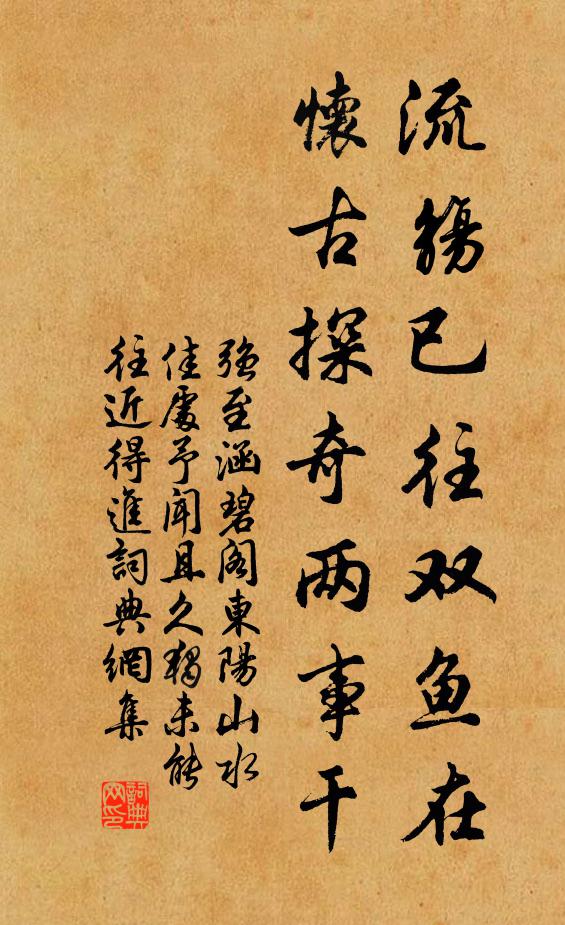 流觞已往双鱼在
懷古探奇两事干
强至涵碧阁東陽山水
佳處予闻且久獨未能
往近得進詞典網集
詞典网印